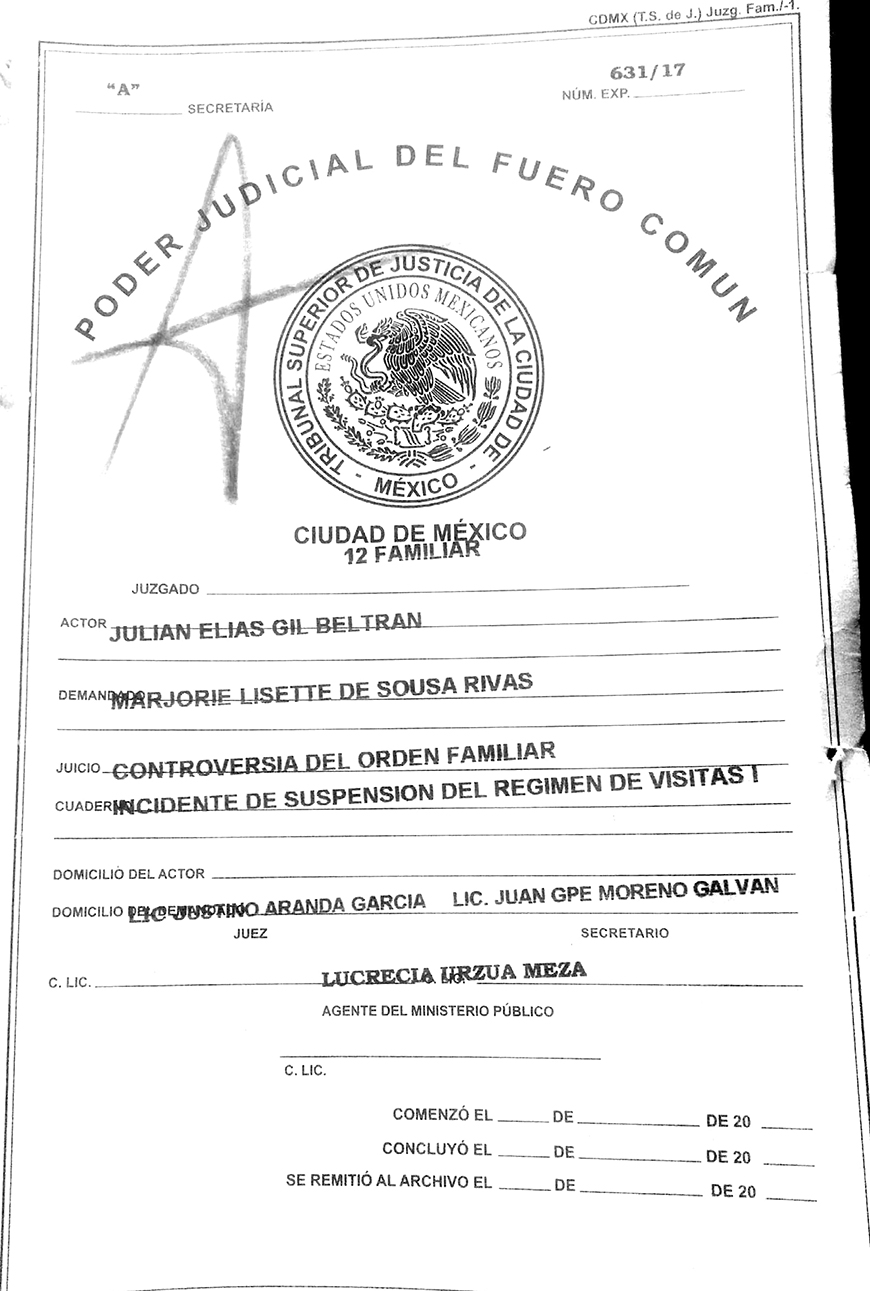 CDMX (T.S. de J.) Juzg. Fam./-1.
"A"
631/17
SECRETARÍA
NÚM. EXP.
A
PODER JUDICIAL DEL FUERO COMUN
TRIBUNAL SUPERIOR DE JUSTICIA DE LA CIUDAD DE - MÉXICO -
ESTADOS UNIDOS MEXICANOS
CIUDAD DE MÉXICO
12 FAMILIAR
JUZGADO
ACTOR JULIAN ELIAS GIL BELTRAN
DEMANDADO MARJORIE LISETTE DE SOUSA RIVAS
JUICIO CONTROVERSIA DEL ORDEN FAMILIAR
CUADERNO INCIDENTE DE SUSPENSION DEL REGIMEN DE VISITAS I
DOMICILIO DEL ACTOR
DOMICILIO DEL DEMANDADO LIC JUSTINO ARANDA GARCIA LIC. JUAN GPE MORENO GALVAN
JUEZ SECRETARIO
C. LIC. LUCRECIA URZUA MEZA LIC.
AGENTE DEL MINISTERIO PÚBLICO
C. LIC.
COMENZÓ EL DE DE 20
CONCLUYÓ EL DE DE 20
SE REMITIÓ AL ARCHIVO EL DE DE 20